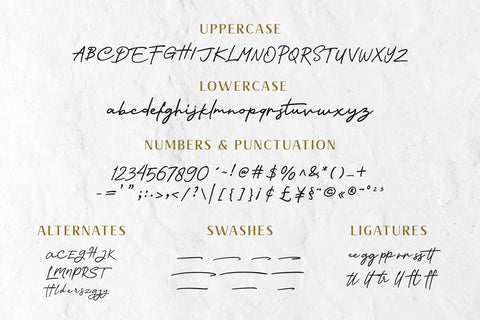 UPPERCASE
ABCDEFGHIJKLMNOPQRSTUVWXYZ
LOWERCASE
abcdefghijklmnopqrstuvwxyz
NUMBERS & PUNCTUATION
1234567890 ´~!@#$%^&*()_+
-='";:.>,</?\|[{]}¡¢£¥§¨©«®
ALTERNATES
aCEGHJK
LMNPRST
SWASHES
LIGATURES
ee gg pp rr ss tt